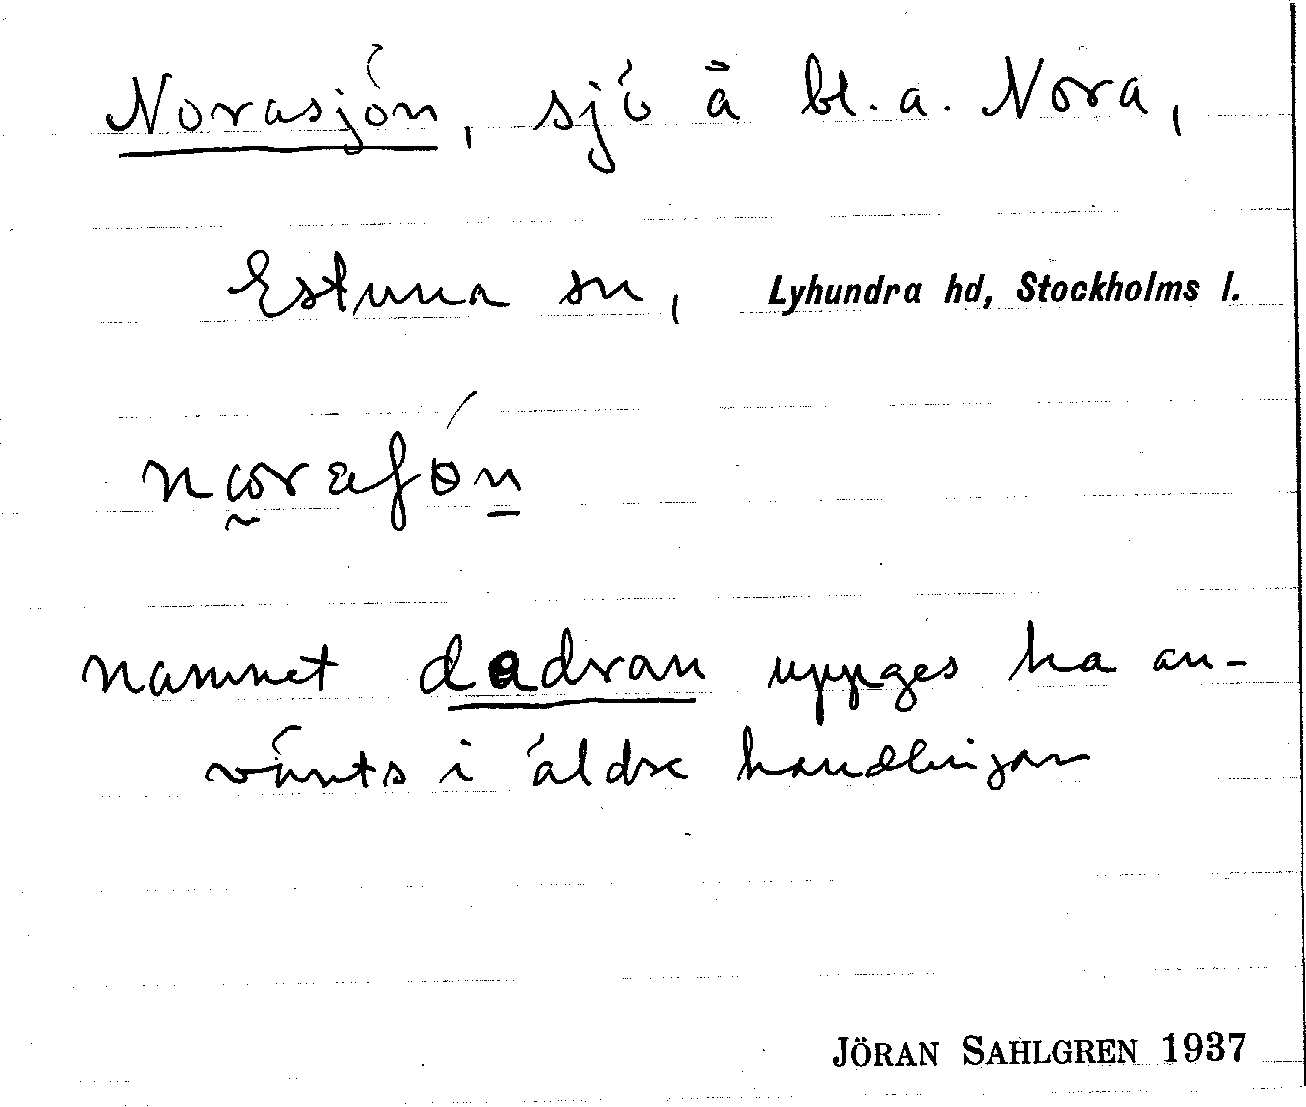 Norasjön, sjö å bl. a. Nora,
Estuna sn, Lyhundra hd, Stockholms l.
namnet dadran uppges ha an-
vänts i äldre handlingar
JÖRAN SAHLGREN 1937